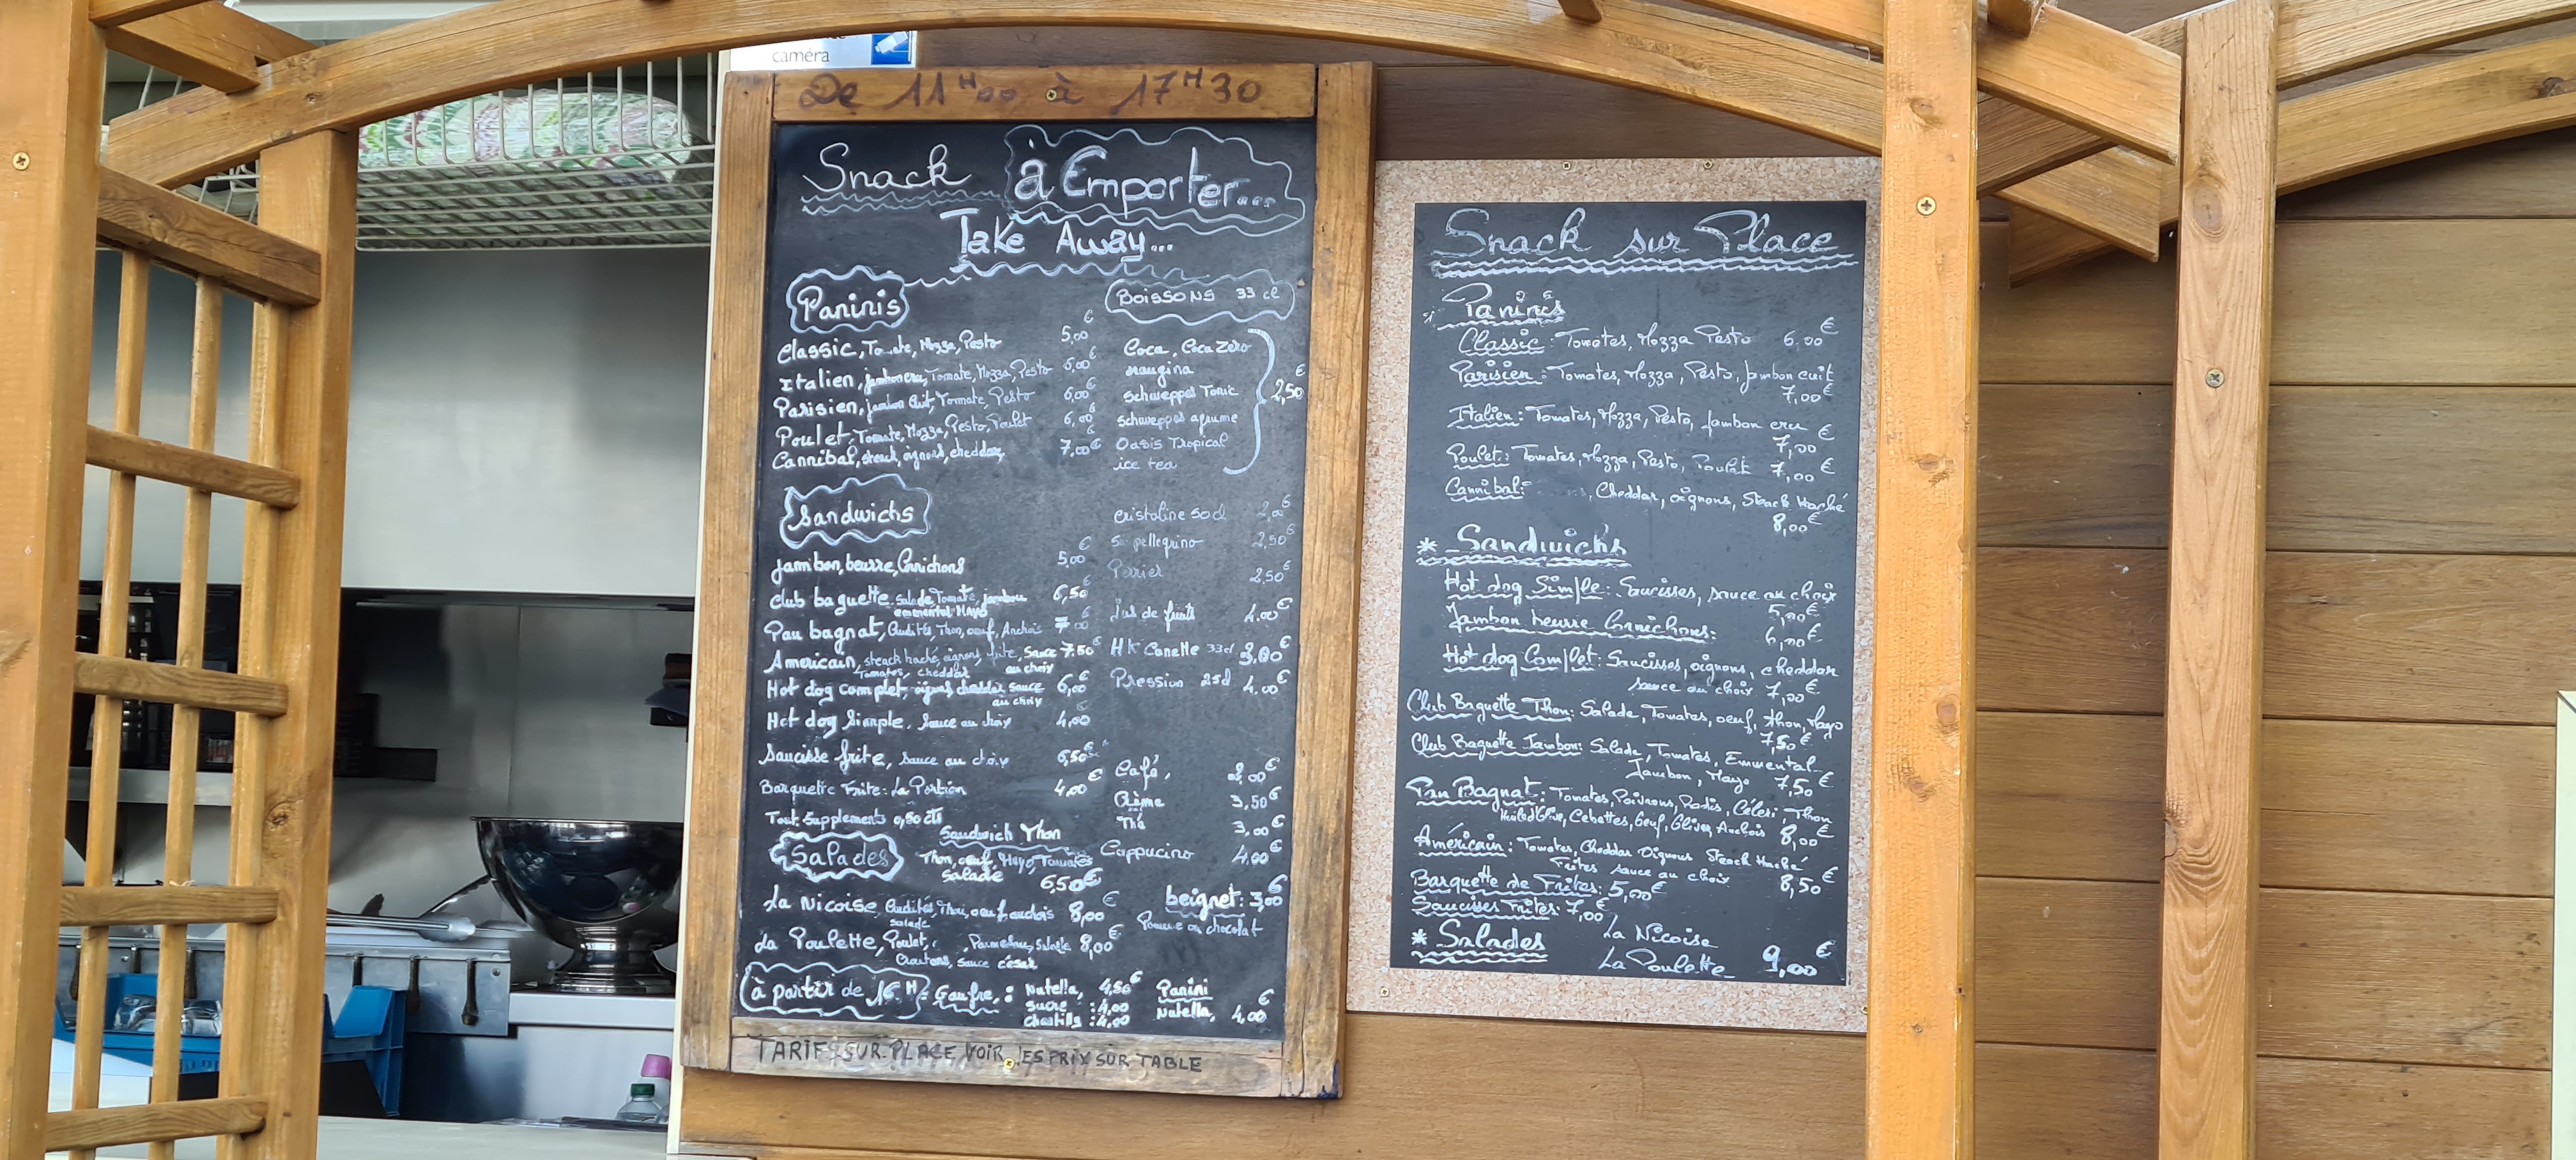 caméra
De 11H00 à 17H30
Snack à Emporter...
Take Away...
Paninis
€
Classic, Tomate, Mozza, Pesto 5,00
Italien, jambon cru, Tomate, Mozza, Pesto 6,00€
Parisien, jambon Cuit, Tomate, Pesto 6,00€
Poulet, Tomate, Mozza, Pesto, Poulet 6,00€
Cannibal, steack, oignons, cheddar, 7,00€
BOISSONS 33 cl
Coca, Coca Zéro
orangina
Schweppes Tonic
Schweppes agrume
Oasis Tropical
ice tea
2,50€
cristaline 50cl 2,00€
Sa. pellegrino 2,50€
Perrier 2,50€
Jus de fruits 4.00€
HK Canette 33cl 3,00€
Pression 25cl 4,00€
Café, 2,00€
Crème 3,50€
Thé 3,00€
Cappucino 4,00€
beignet: 3,00€
Pomme ou chocolat
Sandwichs
jambon, beurre, Cornichons 5,00€
Club baguette, Salade, Tomate, jambon 6,50€
emmental Mayo
Pan bagnat, Crudités, Thon, oeuf, Anchois 7,00€
Americain, steack haché, oignons, frite, Sauce 7.50€
Tomates, cheddar au choix
Hot dog complet, oignons cheddar sauce 6,00€
au choix
Hot dog Simple, Sauce au choix 4,00€
Saucisse frite, sauce au choix 6,50€
Barquette Frite: La Portion 4,00€
Tout Supplements 0,50 cts
Sandwich Thon
Thon, oeuf, Mayo, Tomates
Salade 6,50€
Salades
La Nicoise, Crudités, Thon, oeuf, anchois 8,00€
salade
La Poulette, Poulet, Parmesan, Salade 8,00€
Croutons, Sauce césar
à partir de 16H: Gaufre: Nutella, 4,50€
Sucre: 4,00
Chantilly: 4,00
Panini
Nutella, 4,00€
TARIF SUR PLACE VOIR LES PRIX SUR TABLE
Snack sur Place
* Paninis
Classic: Tomates, Mozza Pesto 6.00€
Parisien: Tomates, Mozza, Pesto, jambon cuit
7,00€
Italien: Tomates, Mozza, Pesto, jambon cru
7,00€
Poulet: Tomates, Mozza, Pesto, Poulet 7,00€
Cannibal: Cheddar, oignons, Steack Haché
8,00€
* Sandwichs
Hot dog Simple: Saucisses, sauce au choix
5,00€
Jambon beurre Cornichons: 6,00€
Hot dog Complet: Saucisses, oignons, cheddar
sauce au choix 7,00€
Club Baguette Thon: Salade, Tomates, oeuf, thon, Mayo
7,50€
Club Baguette Jambon: Salade, Tomates, Emmental
Jambon, Mayo 7,50€
Pan Bagnat: Tomates, Poivrons, Radis, Céleri, Thon
Huile d'Olive, Cebettes, Oeuf, Olives Anchois 8,00€
Américain: Tomates, Cheddar Oignons Steack Haché
Frites sauce au choix 8,50€
Barquette de Frites: 5,00€
Saucisses Frites: 7,00€
* Salades La Nicoise
La Poulette 9,00€